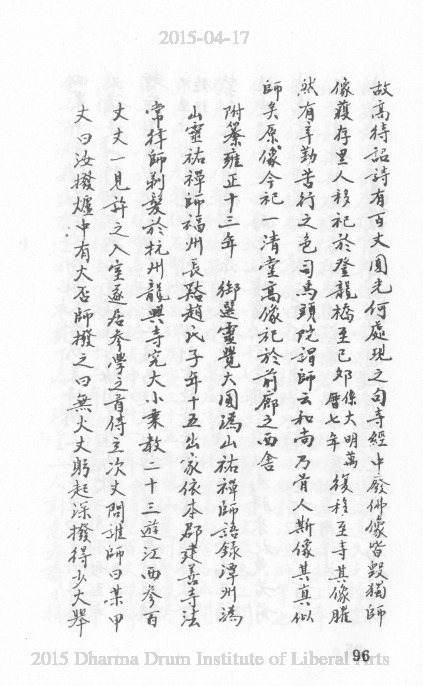 2015-04-17
故高待詔詩有百丈圓光何處現之句寺經中廢佛像皆毀獨師
像獲存里人移祀於登龍橋至己卯係大明萬曆七年復移至寺其像臞
然有辛勤苦行之色司馬頭陀謂師云和尚乃骨人斯像其真似
師矣原像今祀一清堂高像祀於前廊之西舍
附纂雍正十三年 御選靈覺大圓溈山祐禪師語錄潭州溈
山靈祐禪師福州長谿趙氏子年十五出家依本郡建善寺法
常律師剃髮於杭州龍興寺究大小乘教二十三遊江西參百
丈丈一見許之入室遂居參學之首侍立次丈問誰師曰某甲
丈曰汝撥爐中有火否師撥之曰無火丈躬起深撥得少火舉
96
2015 Dharma Drum Institute of Liberal Arts